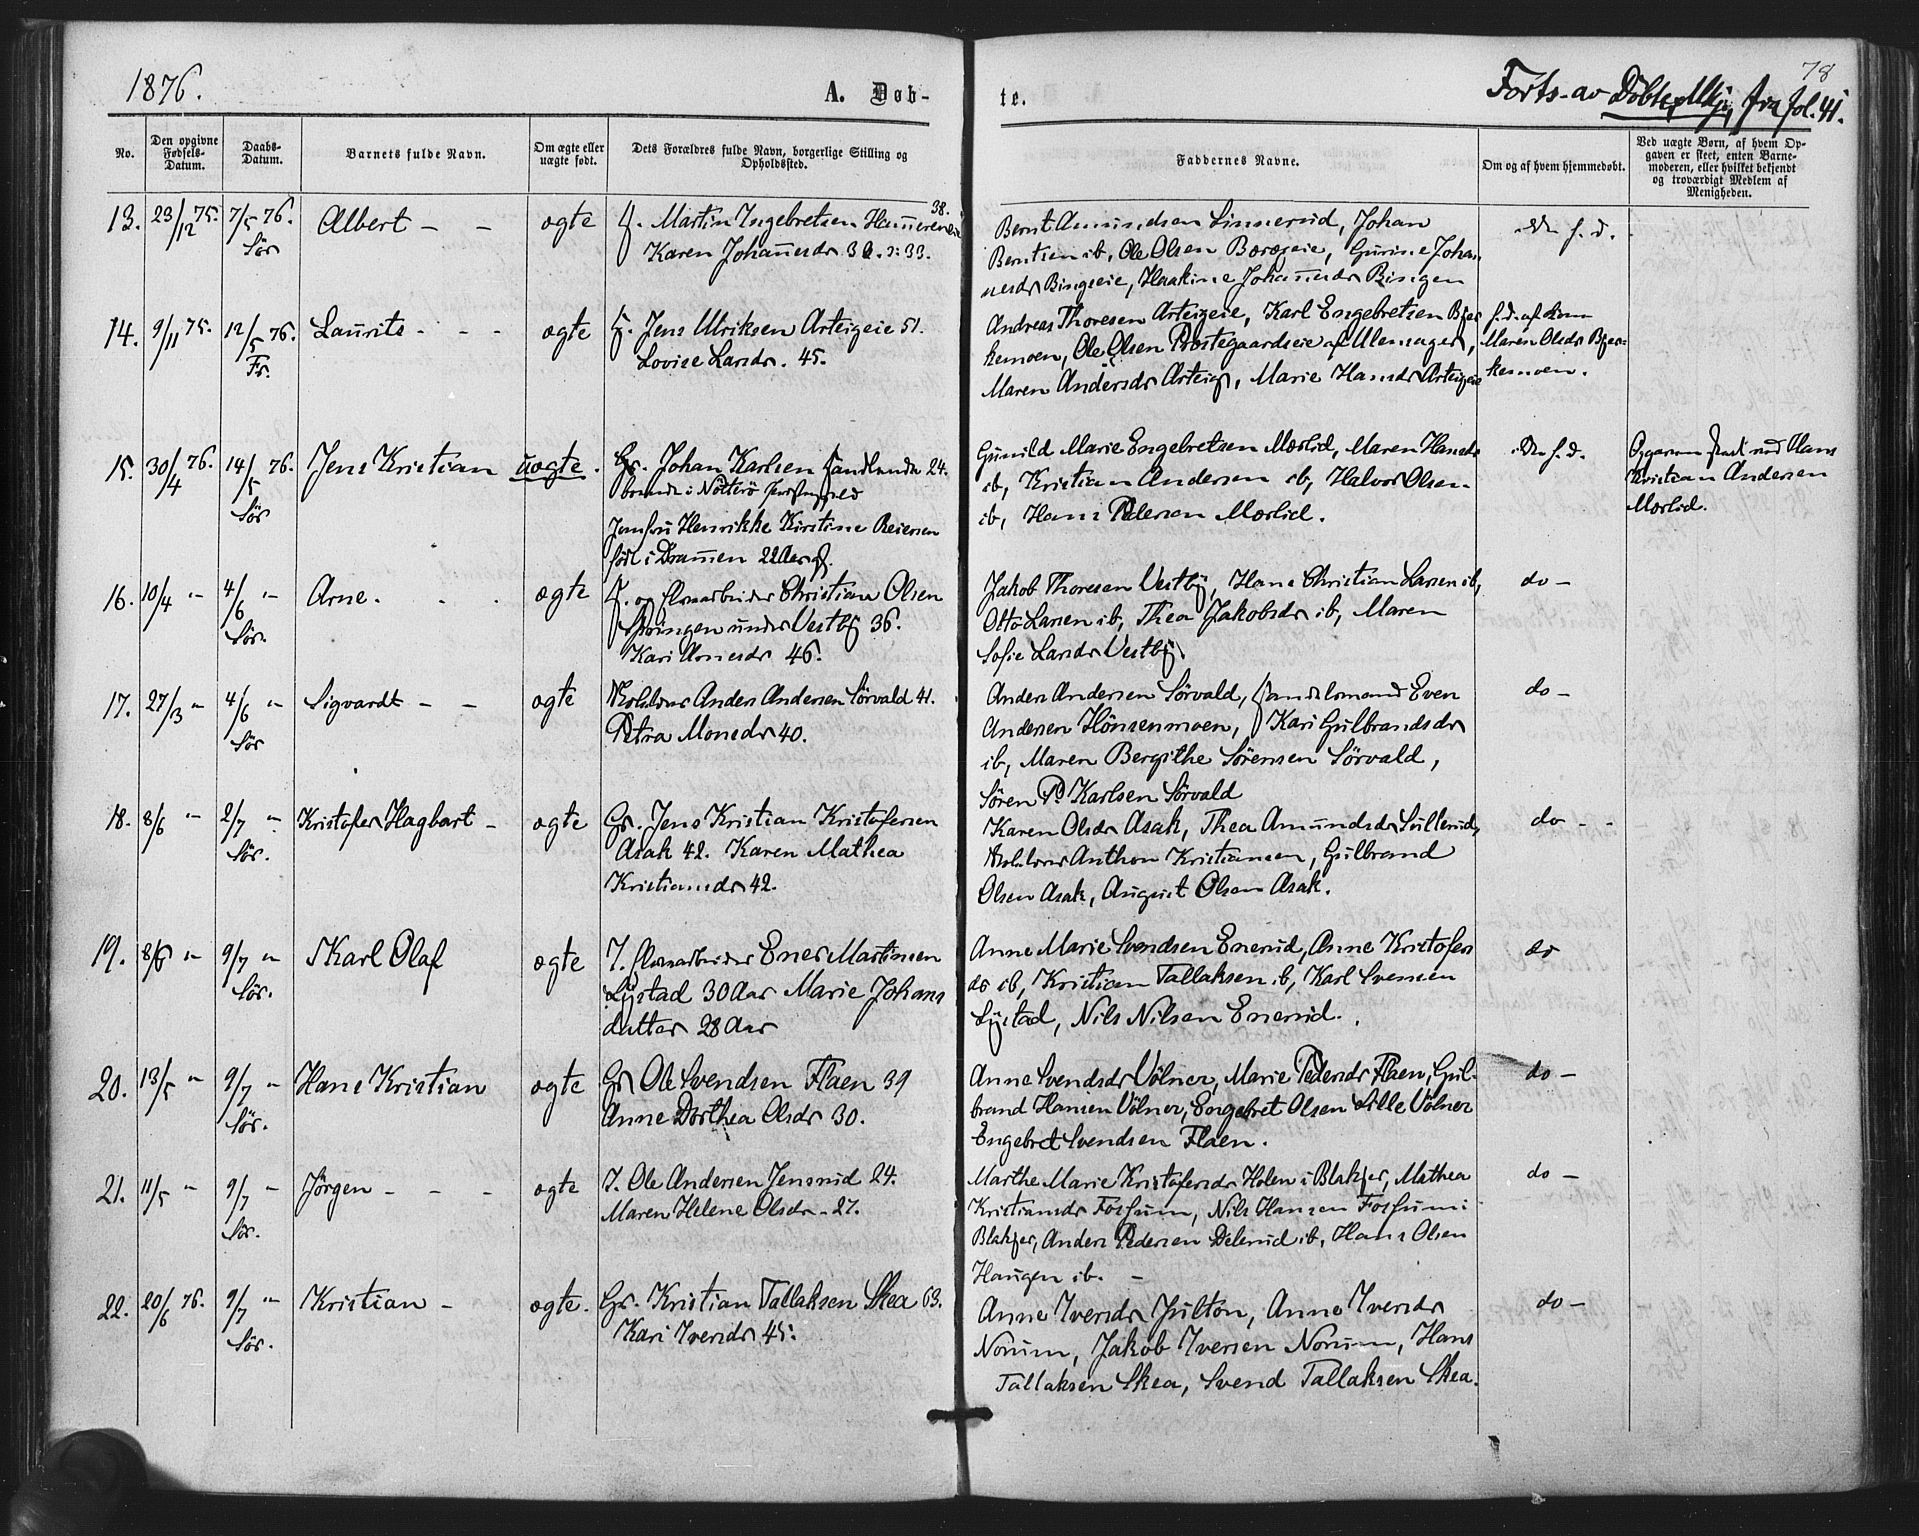 1876.
A. Døb-
te.
Forts. av Döbte, Mkj., fra fol. 41.
78
No.
Den opgivne Fødsels-Datum.
Daabs-Datum.
Barnets fulde Navn.
Om ægte eller uægte født.
Dets Forældres fulde Navn, borgerlige Stilling og Opholdssted.
Faddernes Navne.
Om og af hvem hjemmedøbt.
Ved uægte Børn, af hvem Opgaven er skeet, enten Barnemoderen, eller hvilket bekjendt og troværdigt Medlem af Menigheden.
13. 23/12 75. 7/5 76. Sör Albert - - ægte
38.
Martin Ingebretsen
Karen Johannesdr
Bernt Amundsen Linnerud, Johan
Berntsen ib, Ole Olsen Borægeie, Gurine Johan
nesdr Bingeeie, Haakine Johannesdr Bingen
h. d.
14. 9/11 75. 12/5 76. Fr. Laurits - - - ægte
Jens Ulriksen Arteigeie 51.
Lovise Larsdr. 45.
Andreas Thoresen Arteigeie, Karl Engebretsen Bjer
kemoen, Ole Olsen Prestegaardseie af Ullensager,
Maren Andersdr Arteig, Marie Hansdr Arteigeie
h.d. af Kone
Maren Olsdr Bjer-
kemoen.
15. 30/4 76. 14/5 76. Sör Jens Kristian uægte.
Gr. Johan Karlsen 24.
boende i Nötterö
Jomfru Henrikke Kirstine Reiersen
föd i Drammen 22 Aar g.
Gunild Marie Engebretsen Mærlid, Maren Hansdr
ib, Kristian Andersen ib, Halvor Olsen
ib, Hans Pedersen Mærlid.
h. d.
Opgaven skeet ved Hans
Kristian Andersen
Mærlid.
16. 10/4 " 4/6 " Sör. Arne. - - - ægte
Christian Olsen
under Vestby 36.
Kari Arnesdr 46.
Jakob Thoresen Vestby, Hans Christian Larsen ib,
Otto Larsen ib, Thea Jakobsdr ib, Maren
Sofie Larsdr Vestby.
do -
17. 27/3 " 4/6 " Sör Sigvardt - - ægte
Anders Andersen Sörvald 41.
Petra Monsdr 40.
Anders Andersen Sörvald, Even
Andersen Hönsenmoen, Kari Gulbrandsdr
ib, Maren Bergithe Sörensen Sörvald,
Sören P. Karlsen Sörvald
do -
18. 8/6 " 2/7 " Sör. Kristofer Hagbart - ægte
Gr. Jens Kristian Kristofersen
Asak 42. Karen Mathea
Kristiansdr 42.
Karen Olsdr Asak, Thea Amundsdr Sullerud,
Anthon Kristiansen, Gulbrand
Olsen Asak, August Olsen Asak.
do - -
19. 8/6 " 9/7 " Sör. Karl Olaf ægte
I. Flomarbeider Ener Martinsen
Lystad 30 Aar Marie Johans
datter 28 Aar
Anne Marie Svendsen Enerud, Anne Kristofers
dr ib, Kristian Tallaksen ib, Karl Svensen
Lystad, Nils Nilsen Enerud.
do
20. 13/5 " 9/7 " Sör. Hans Kristian ægte
Gr Ole Svendsen Flaen 39
Anne Dorthea Olsdr 30.
Anne Svendsdr Völner, Marie Pedersdr Flaen, Gul-
brand Hansen Völner, Engebret Olsen Lille Völner
Engebret Svendsen Flaen.
do -
21. 11/5 " 9/7 " Sör. Jörgen - - - ægte
I. Ole Andersen Jensrud 24.
Maren Helene Olsdr - 27.
Marthe Marie Kristofersdr Holen i Blakjer, Mathea
Kristiansdr Fosfum, Nils Hansen Fosfum i
Blakjer, Anders Pedersen Delerud ib, Hans Olsen
Haugen ib. -
do -
22. 20/6 76. 9/7 " Sör. Kristian - ægte.
Gr. Kristian Tallaksen Skea 63.
Kari Iversdr 45.
Anne Iversdr Julton, Anne Iversdr
Norum, Jakob Iversen Norum, Hans
Tallaksen Skea, Svend Tallaksen Skea.
do -